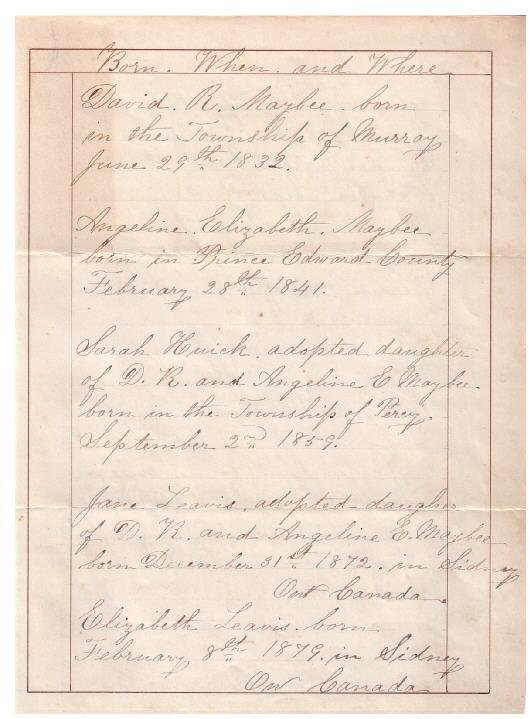 Born. When. and Where
David. R. Maybee. born
in the Township of Murray
June 29th 1832.
Angeline. Elizabeth. Maybee
born in Prince Edward County
February 28th 1841.
Sarah Huick. adopted daughter
of D. R. and Angeline E Maybee.
born in the Township of Percy.
September 2nd 1859.
Jane Leavis. adopted daugher
of D. R. and Angeline E. Maybee
born December 31st 1872. in Sidney
Ont Canada.
Elizabeth Leavis. born
February 8th 1879. in Sidney
On Canada